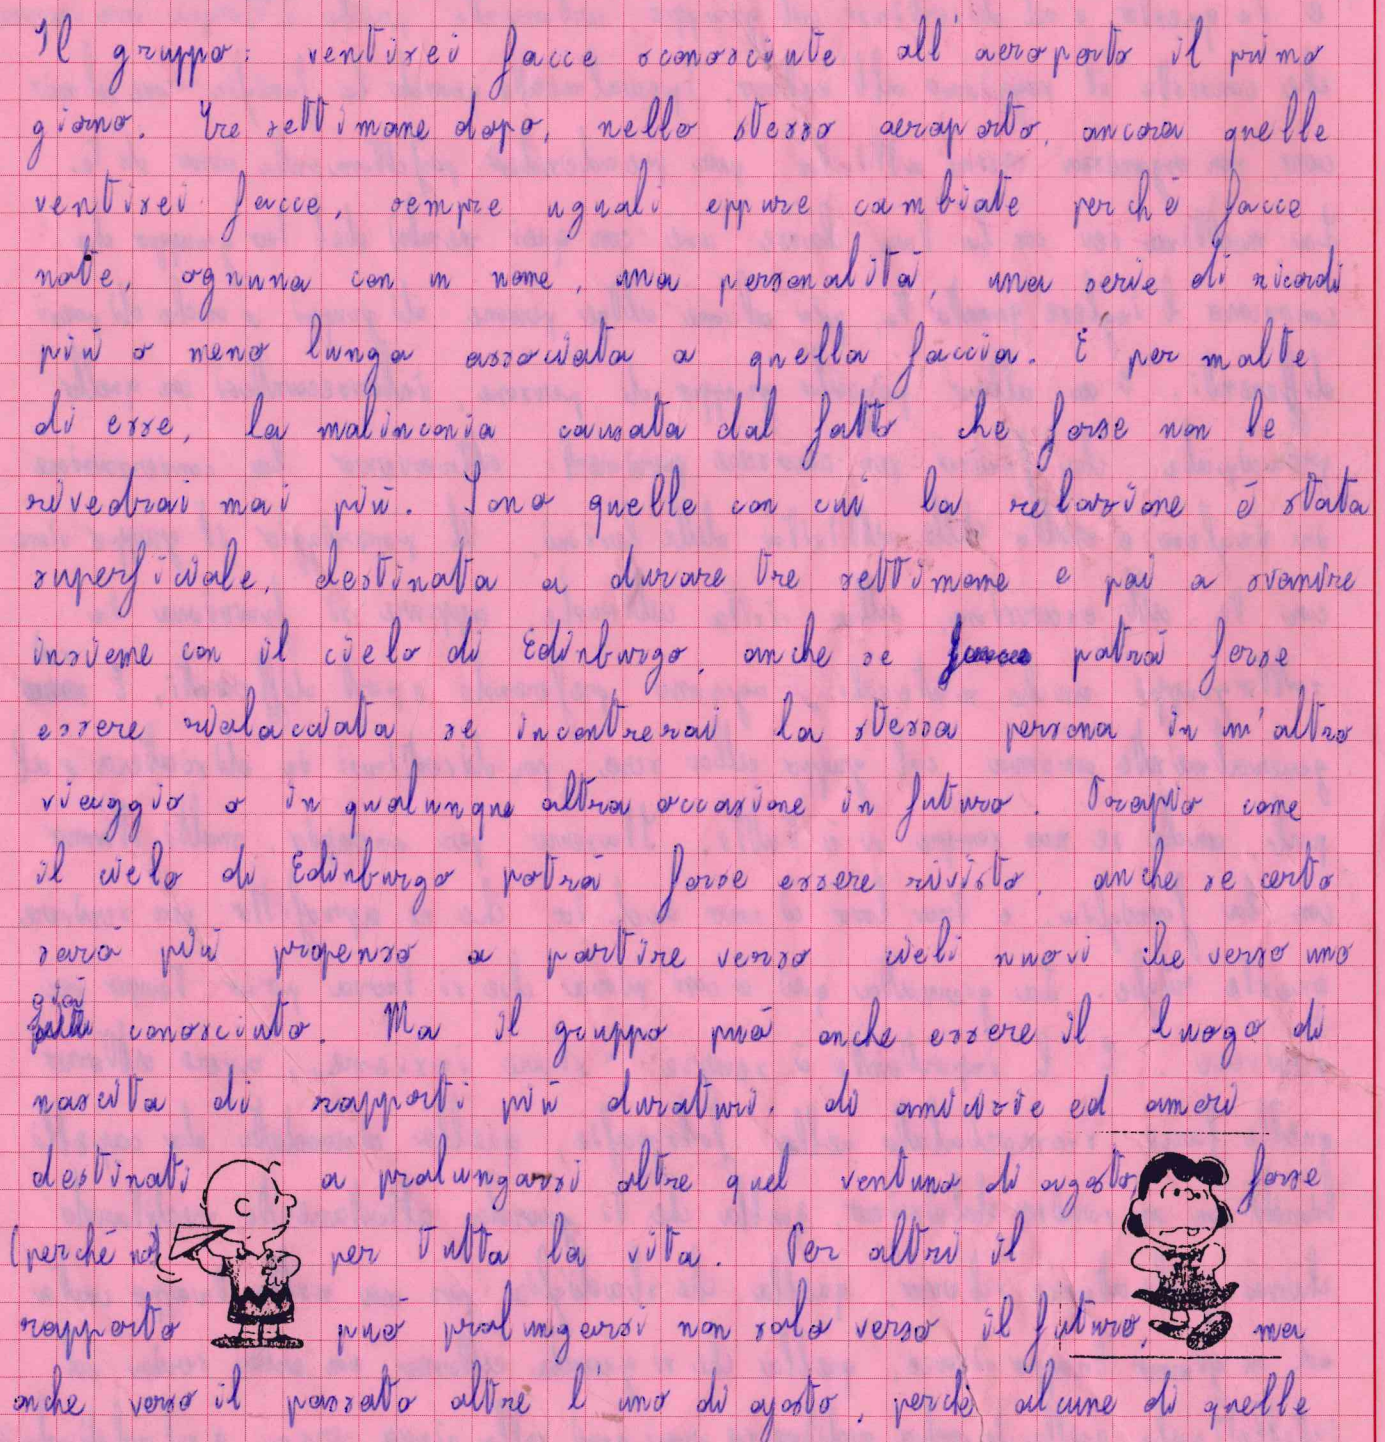 Il gruppo: ventisei facce sconosciute all'aeroporto il primo
giorno. Tre settimane dopo, nello stesso aeroporto, ancora quelle
ventisei facce, sempre uguali eppure cambiate perché facce
note, ognuna con un nome, una personalità, una serie di ricordi
più o meno lunga associata a quella faccia. E per molte
di esse, la malinconia causata dal fatto che forse non le
rivedrai mai più. Sono quelle con cui la relazione è stata
superficiale, destinata a durare tre settimane e poi a svanire
insieme con il cielo di Edinburgo, anche se potrà forse
essere riallacciata se incontrerai la stessa persona in un'altro
viaggio o in qualunque altra occasione in futuro. Proprio come
il cielo di Edinburgo potrà forse essere rivisto, anche se certo
sarò più propenso a partire verso cieli nuovi che verso uno
già conosciuto. Ma il gruppo può anche essere il luogo di
nascita di rapporti più duraturi, di amicizie ed amori
destinati a prolungarsi oltre quel ventuno di agosto, forse
(perché no?) per tutta la vita. Per altri il
rapporto può prolungarsi non solo verso il futuro, ma
anche verso il passato oltre l'uno di agosto, perché alcune di quelle